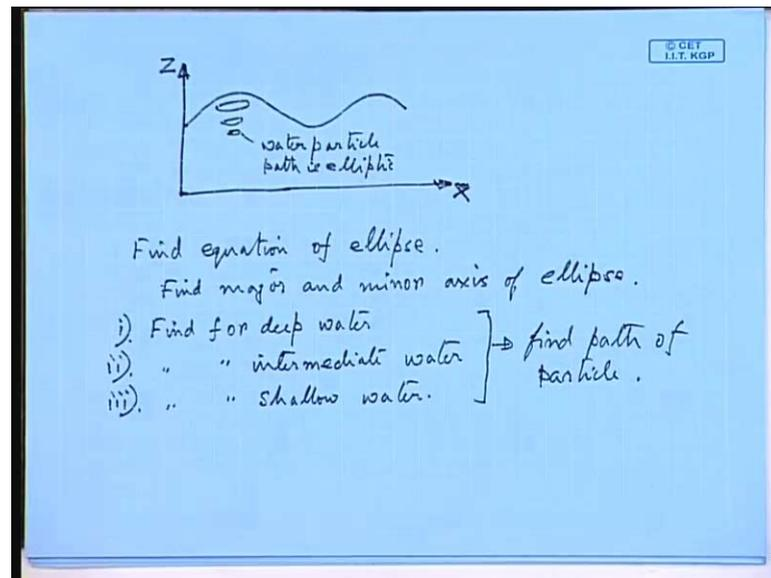 © CET
I.I.T. KGP
Z
water particle
path is elliptic
X
Find equation of ellipse.
Find major and minor axis of ellipse.
i). Find for deep water
ii). " " intermediate water
iii). " " shallow water.
→ find path of
particle.